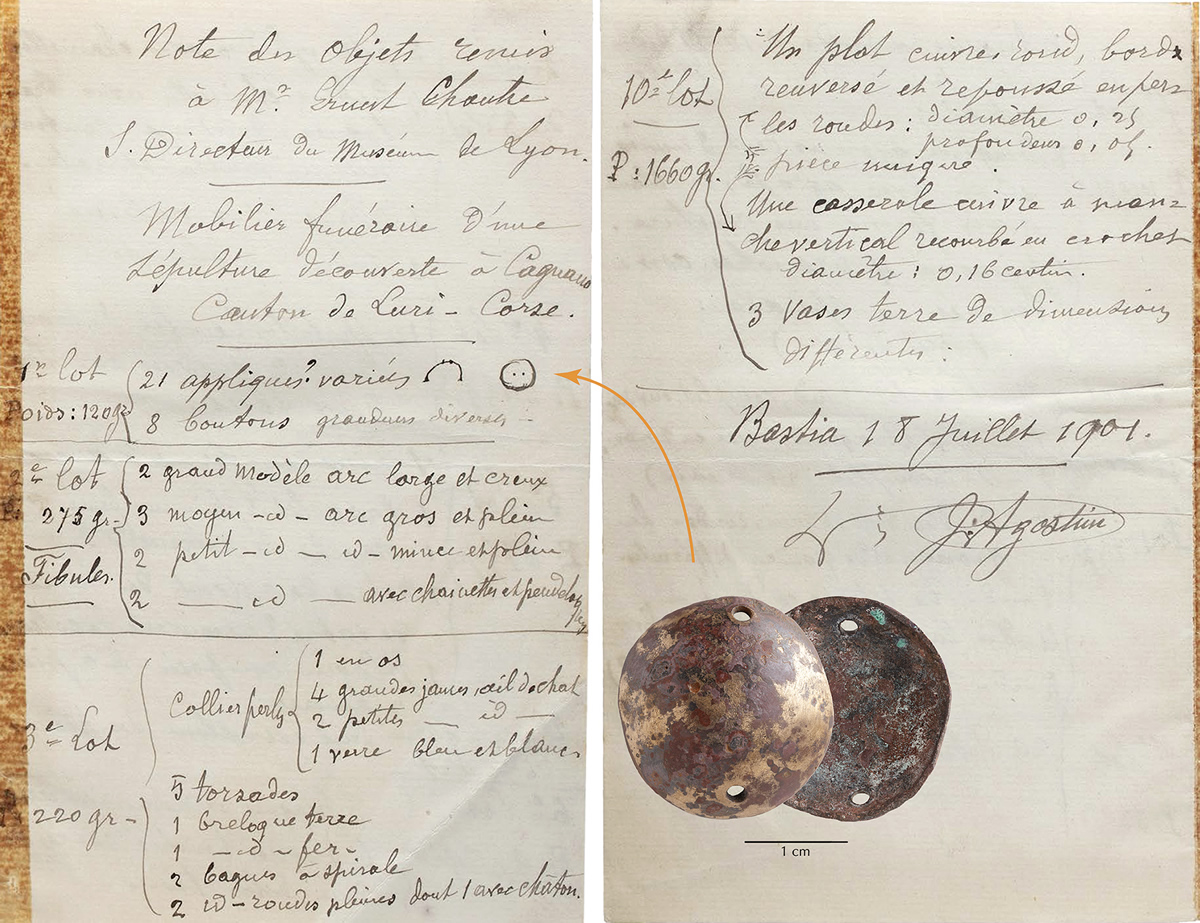 Note des Objets remis
à Mr Ernest Chantre
S. Directeur du Muséum de Lyon.
Mobilier funéraire d'une
sépulture découverte à Cagnano
Canton de Luri - Corse.
1er lot
Poids: 120gr
21 appliques? variés
8 boutons grandeurs diverses -
2e lot
P: 275 gr-
Fibules.
2 grand modèle arc large et creux
3 moyen -id- arc gros et plein
2 petit - id - id - mince et plein
2 - id - avec chainettes et pendeloques
3e Lot
P: 220 gr -
Collier perles
1 en os
4 grandes jaunes, œil de chat
2 petites - id -
1 verre bleu et blanc
5 torsades
1 breloque terre
1 - id - fer -
2 bagues à spirale
2 id - rondes pleines dont 1 avec châton.
10e lot
P: 1660 gr.
Un plat cuivre rond, bords
renversé et repoussé en per=
les rondes: diamètre 0,25
profondeur 0,05.
pièce unique.
Une casserole cuivre à man=
che vertical recourbé en crochet
diamètre: 0,16 centin.
3 Vases terre de dimensions
différentes:
Bastia 18 Juillet 1901.
J. Agostini
1 cm